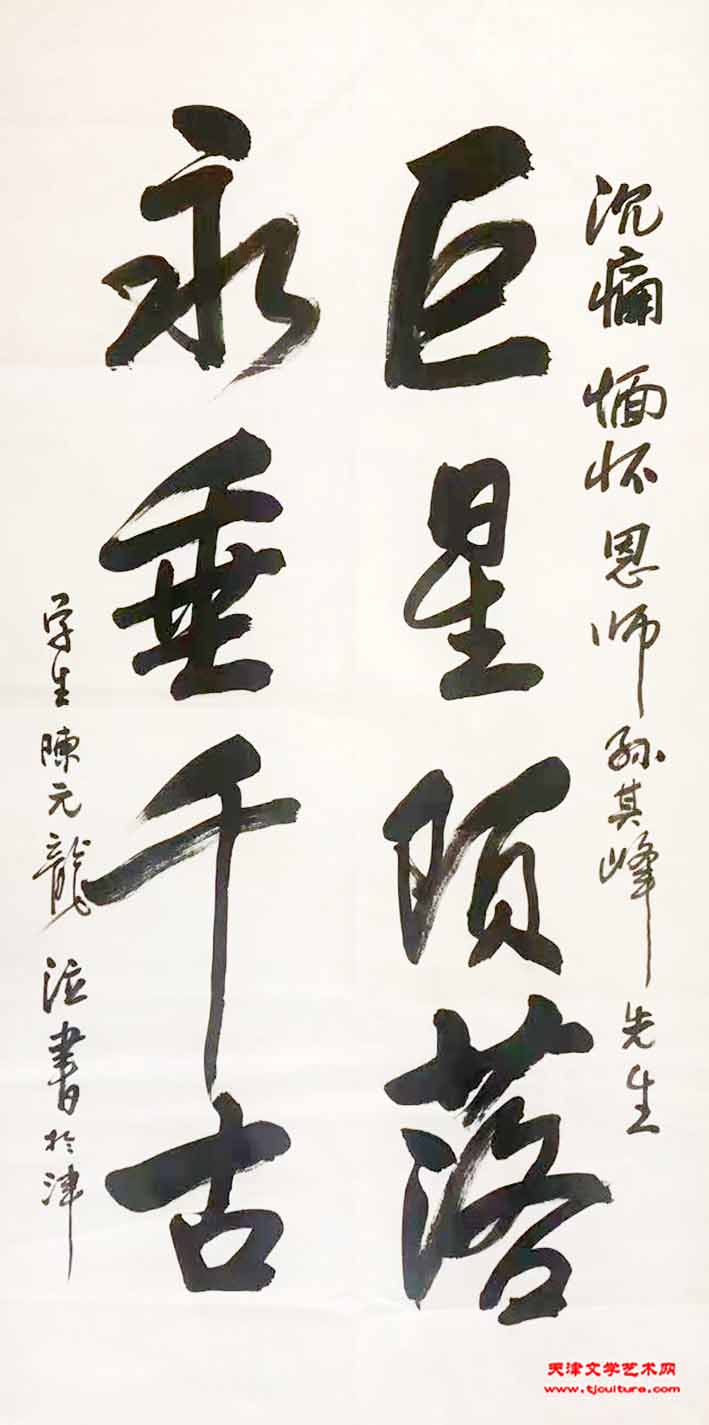 沉痛缅怀恩师孙其峰先生
巨星陨落
永垂千古
学生陳元龍泣書於津
天津文学艺术网
www.tjculture.com